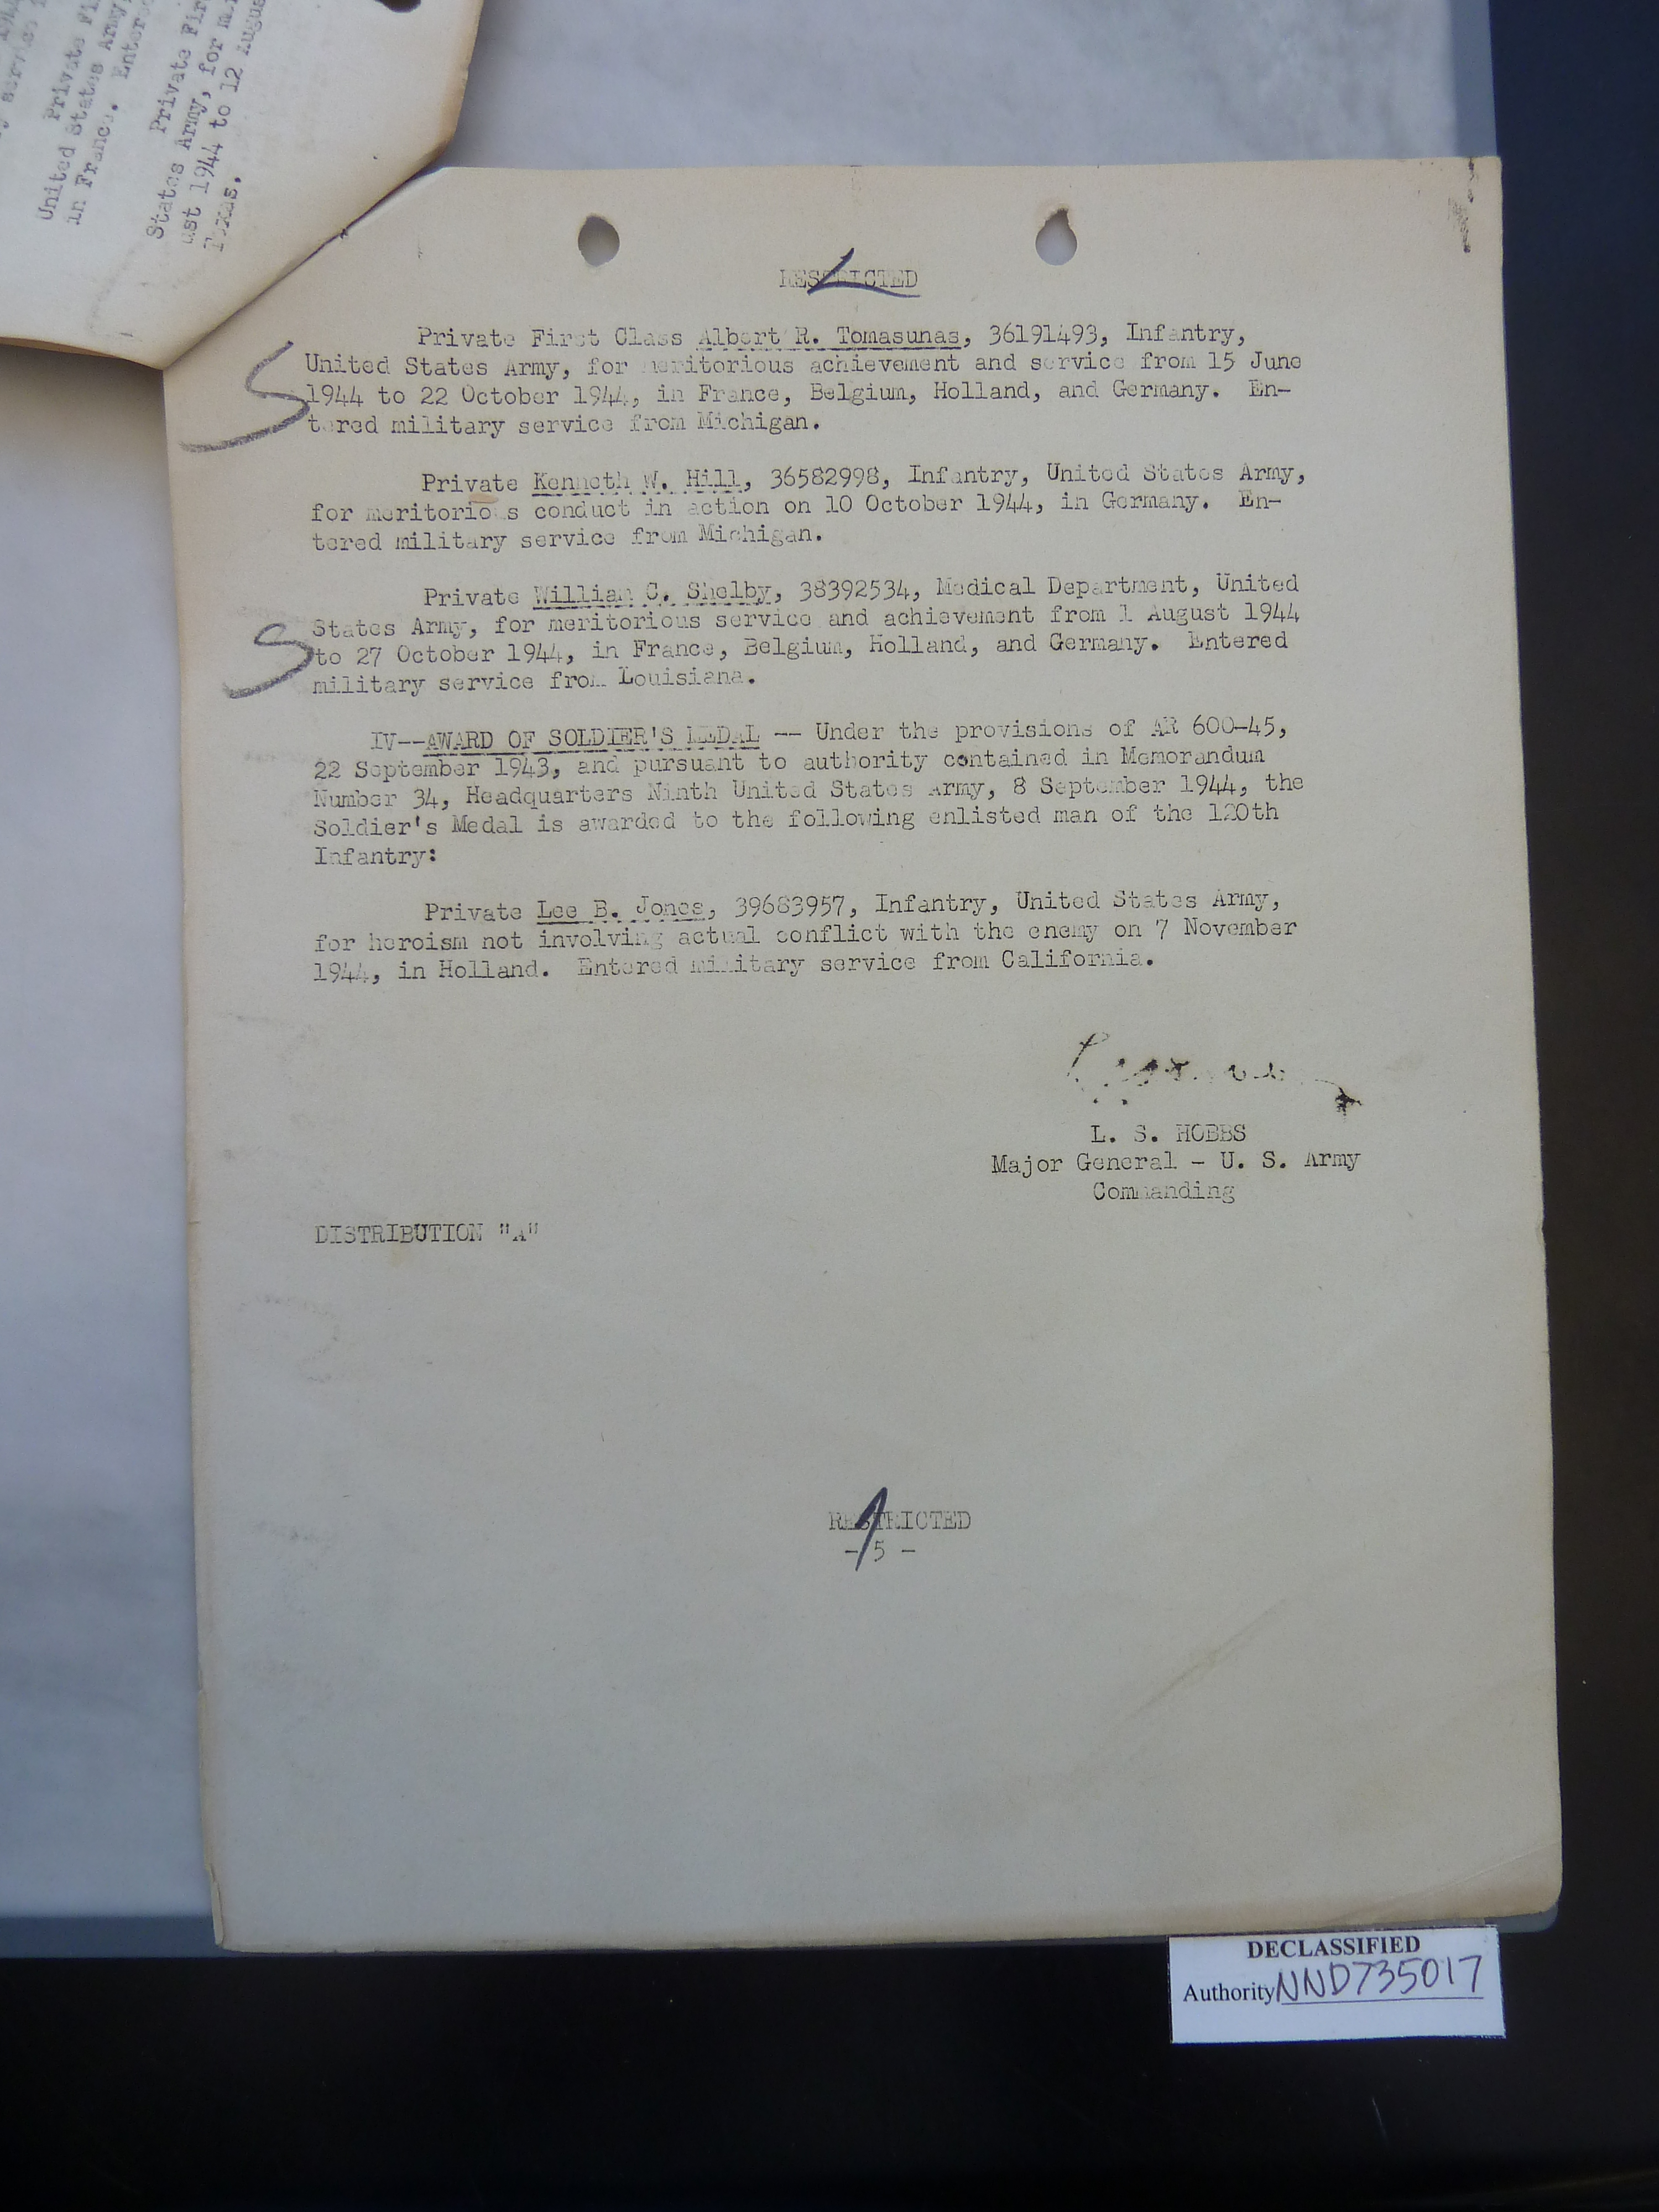 Private Fi
United States Army,
in France. Enter
Private Fir
States Army, for m
ust 1944 to 12 Augus
Texas.
RESTRICTED
Private First Class Albert R. Tomasunas, 36191493, Infantry,
United States Army, for meritorious achievement and service from 15 June
1944 to 22 October 1944, in France, Belgium, Holland, and Germany. En-
tered military service from Michigan.
Private Kenneth W. Hill, 36582998, Infantry, United States Army,
for meritorious conduct in action on 10 October 1944, in Germany. En-
tered military service from Michigan.
Private William C. Shelby, 38392534, Medical Department, United
States Army, for meritorious service and achievement from 1 August 1944
to 27 October 1944, in France, Belgium, Holland, and Germany. Entered
military service from Louisiana.
S
S
IV--AWARD OF SOLDIER'S MEDAL -- Under the provisions of AR 600-45,
22 September 1943, and pursuant to authority contained in Memorandum
Number 34, Headquarters Ninth United States Army, 8 September 1944, the
Soldier's Medal is awarded to the following enlisted man of the 120th
Infantry:
Private Lee B. Jones, 39683957, Infantry, United States Army,
for heroism not involving actual conflict with the enemy on 7 November
1944, in Holland. Entered military service from California.
L. S. HOBBS
Major General - U. S. Army
Commanding
DISTRIBUTION "A"
RESTRICTED
- 5 -
DECLASSIFIED
Authority NND735017